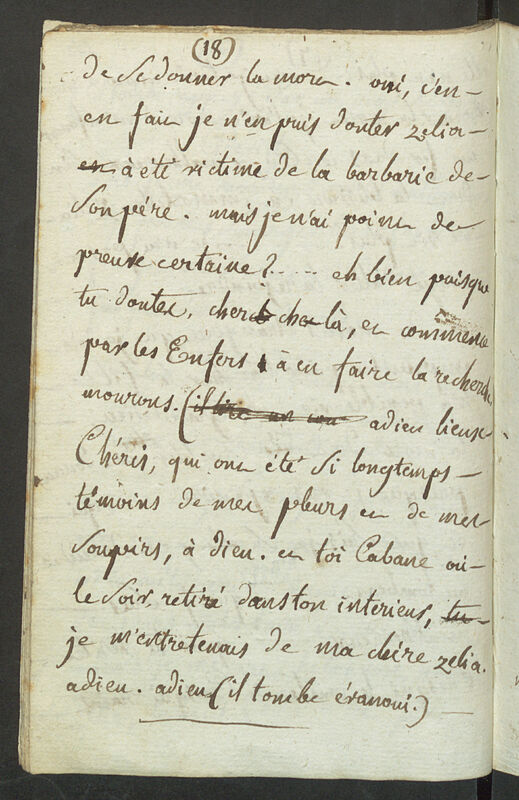 (18)
de se donner la mort. oui, c'en
en fait je n'en puis douter zelia
en à été victime de la barbarie de
son pére. mais je n'ai point de
preuve certaine?.... eh bien puisque
tu doutes, cherche là, et commence
par les Enfers à en faire la recherche
mourons. (il tire un cou adieu lieux
Chéris, qui ont été si longtemps
témoins de mes pleurs et de mes
soupirs, à dieu. et toi Cabane où
le soir, retiré dans ton interieur, tu
je m'entretenais de ma chére zelia.
adieu. adieu (il tombe évanoui.)